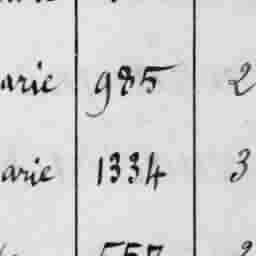 arie 985 2
arie 1334 3
557 2